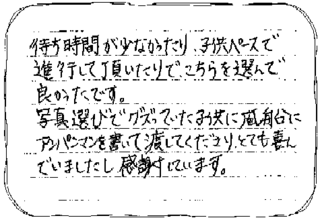 待ち時間が少なかったり 子供ペースで
進行して頂いたりでこちらを選んで
良かったです。
写真選びでグズっていた子供に風船に
アンパンマンを書いて渡してくださり、とても喜ん
でいましたし 感謝しています。